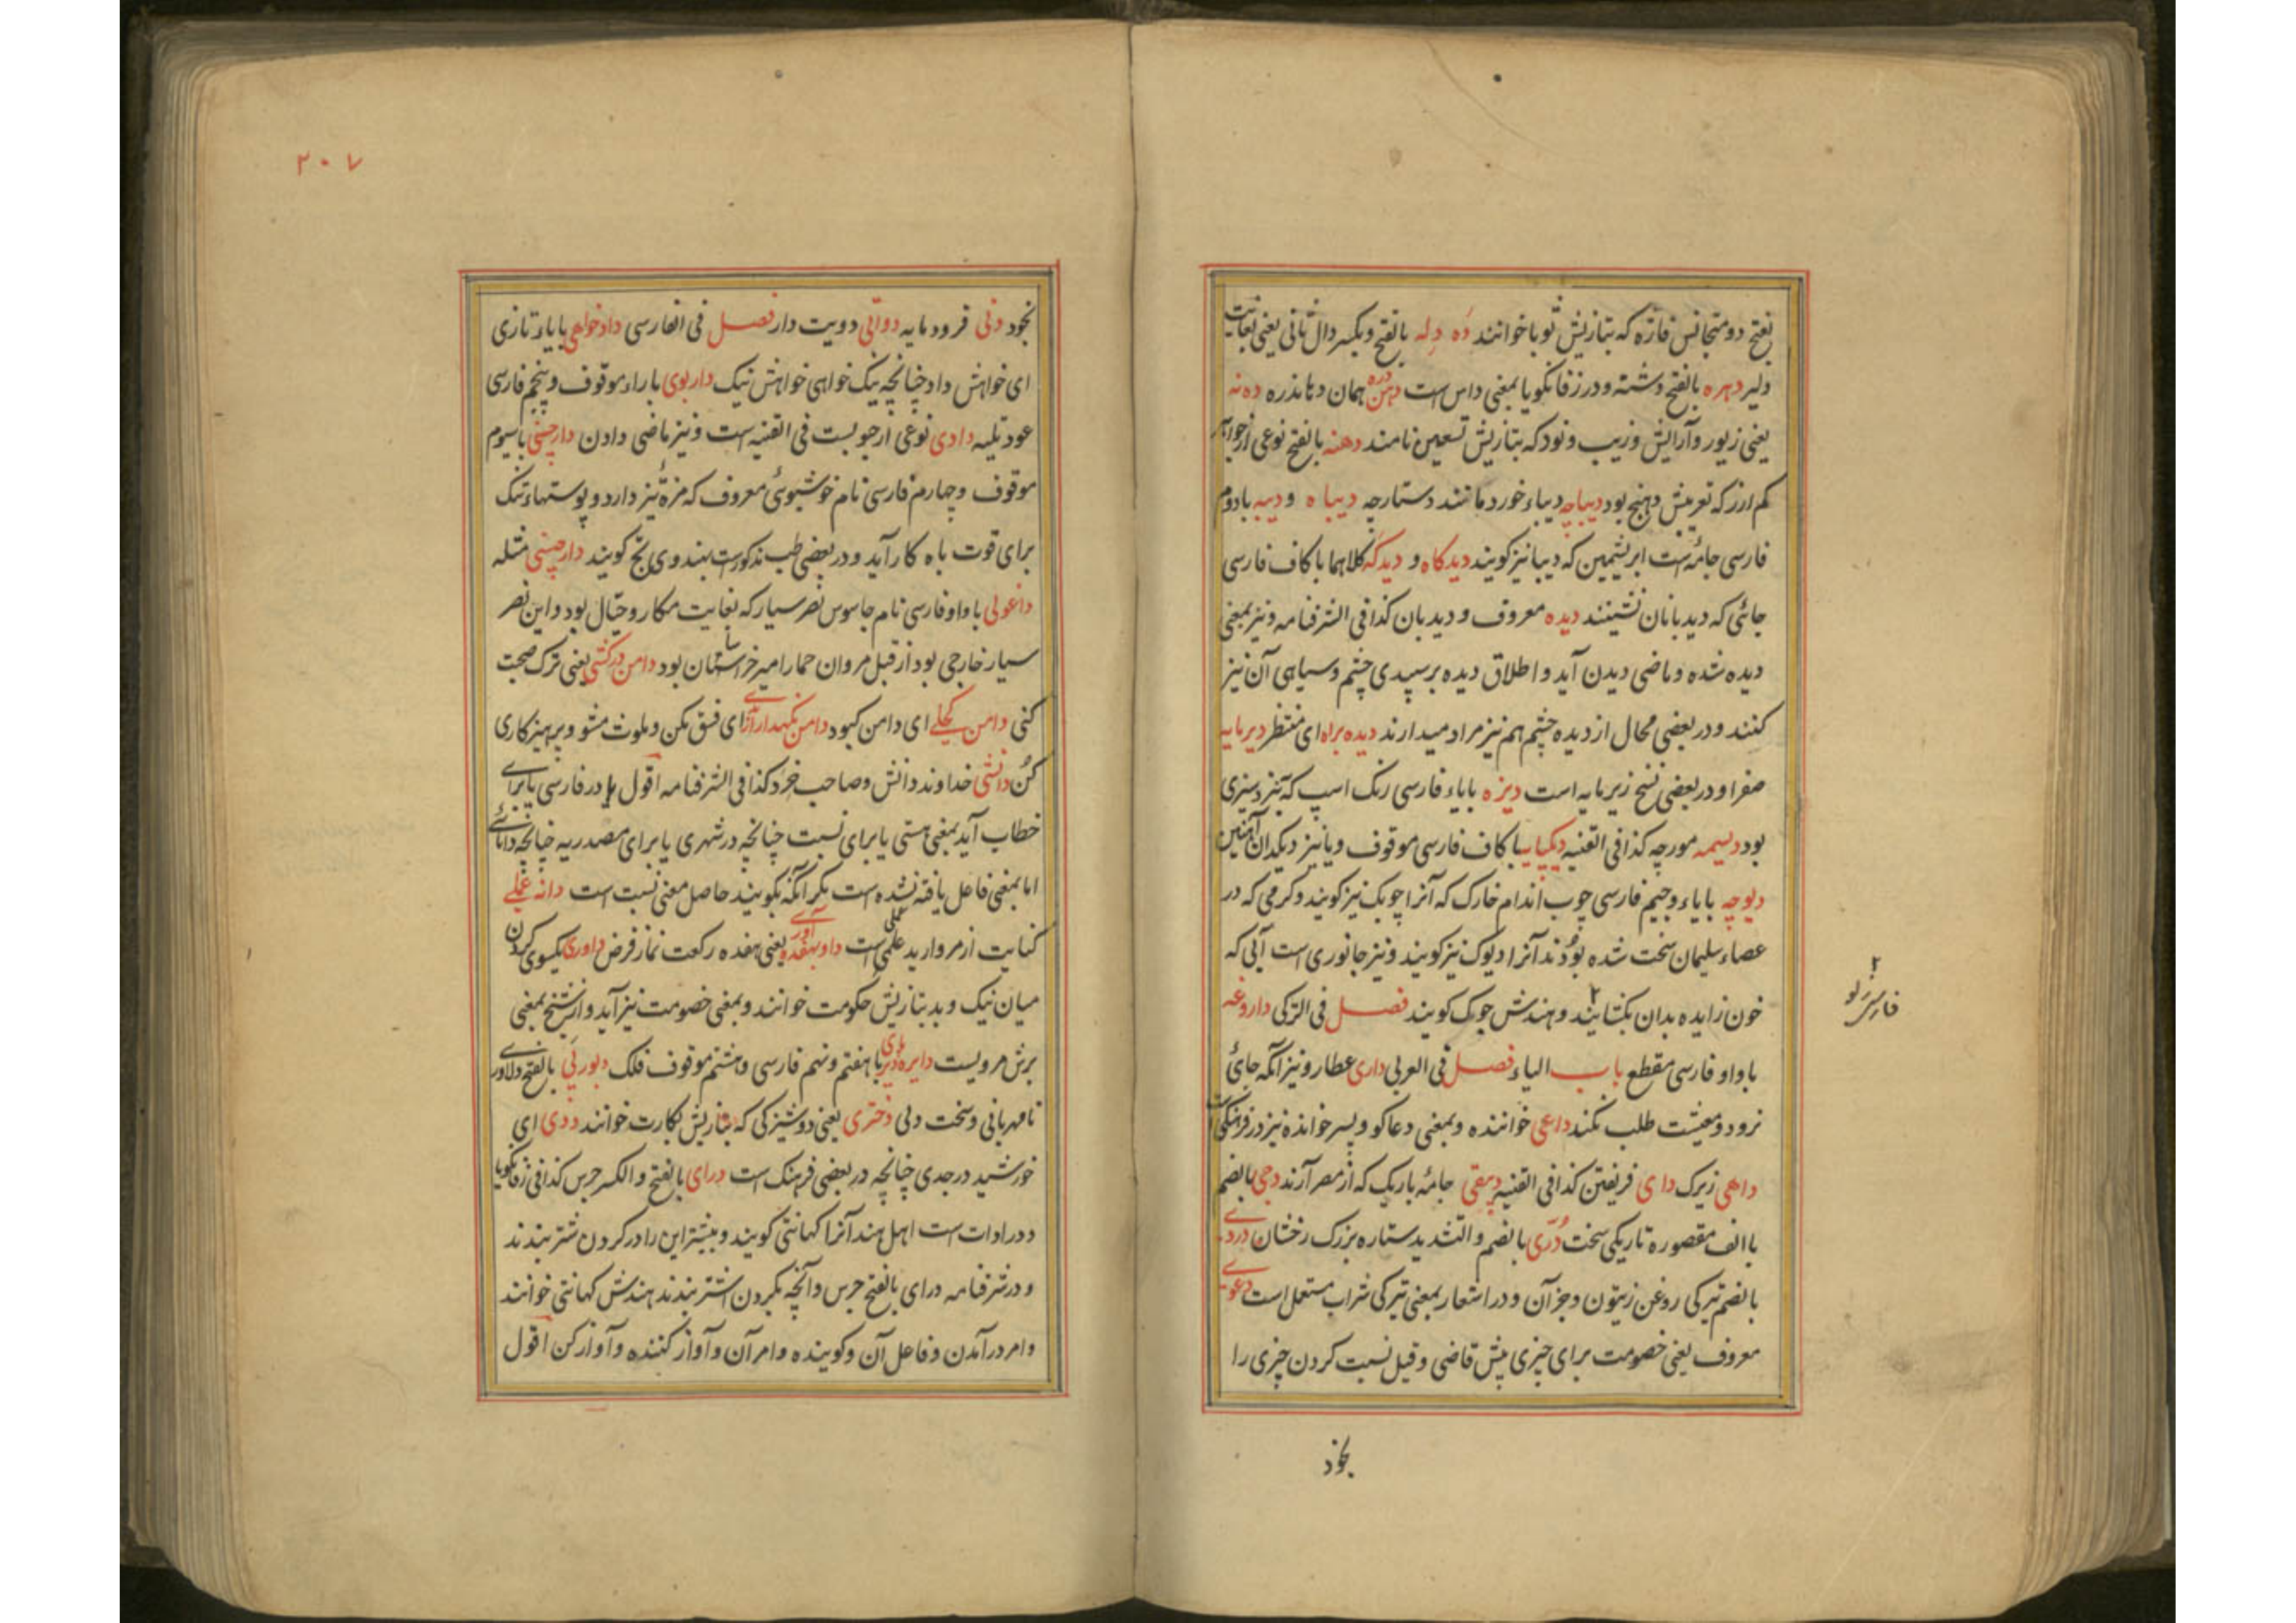 بفتح دو متجانس فازه که بتازیش ثوبا خوانند ده دله بالفتح و بکسر دال ثانی یعنی بغایت
دلیر دهره بالفتح دشنه و در زفانگویا بمعنی داس است دهن دره همان دهاندره ده نه
یعنی زیور و آرایش و زیب و نود که بتازیش نامند دهنه بالفتح نوعی از جواهر
کم ارز که تعریبش دهنج بود دیباچه دیباء خورد مانند دستارچه دیباه و دیبه بادوم
فارسی جامه است ابریشمین که دیبا نیز کویند دیدکاه و دیدکه کلاهما با کاف فارسی
جائی که دیدبانان نشینند دیده معروف و دیدبان کذا فی الشرفنامه و نیز بمعنی
دیده شده و ماضی دیدن آید و اطلاق دیده بر سپیدی چشم و سیاهی آن نیز
کنند و در بعضی محال از دیده چشم هم نیز مراد میدارند دیده براه ای منتظر دیرمایه
صفرا و در بعضی نسخ زیرمایه است دیزه بایاء فارسی رنک اسپ که
بود دیسمه مورچه کذا فی القنیه دیکپایه با کاف فارسی موقوف و یا نیز دیکدان آهنین
دیوچه بایاء و جیم فارسی چوب اندام خارک که آنرا چوبک نیز کویند و کرمی که در
عصاء سلیمان سخت شده بود آنرا دیوک نیز کویند و نیز جانوری است آبی که
خون زایده بدان بکشایند و هندش جوک کویند فصل فی الترکی داروغه
۲ فارسی
باواو فارسی مقطع باب الیاء فصل فی العربی داری عطار و نیز آنکه جائ
نرود و معیشت طلب نکند داعی خواننده و بمعنی دعاکو و پسر خوانده نیز در فرهنکی است
داهی زیرک دای فریفتن کذا فی القنیه دبیقی جامه باریک که از مصر آرند دجی بالضم
باالف مقصوره تاریکی سخت دری بالضم و التشدید ستاره بزرک رخشان دردی
بالضم تیرکی روغن زیتون و جز آن و در اشعار بمعنی تیرکی شراب مستعمل است دعوی
معروف یعنی خصومت برای چیزی پیش قاضی و قیل نسبت کردن چیزی را
بخود
۲۰۷
بخود دنی فرومایه دواتی دویت دار فصل فی الفارسی دادخواهی بایاء تازی
ای خواهش داد چنانچه نیک خواهی خواهش نیک داربوی با راء موقوف و پنجم فارسی
عود تلیه دادی نوعی ازجو بست فی القنیه است و نیز ماضی دادن دارچینی باسیوم
موقوف و چهارم فارسی نام خوشبوئی معروف که مزه نیز دارد و پوستهاء تنک
برای قوت باه کار آید و در بعضی طب مذکور است بهندوی تج کویند دارچینی مثله
داغولی باواو فارسی نام جاسوس نصر سیار که بغایت مکار و حیال بود و این نصر
سیار خارجی بود از قبل مروان حمار امیر خراسان بود دامن درکشی یعنی ترک صحبت
کنی دامن کحلی ای دامن کبود دامن نکهدار ای فسق مکن و ملوث مشو و پرهیزکاری
کن دانشی خداوند دانش و صاحب خرد کذا فی الشرفنامه اقول یا در فارسی یا برای
خطاب آید بمعنی هستی یا برای نسبت چنانچه در شهری یا برای مصدریه چنانچه دانائی
اما بمعنی فاعل یافته نشده است مکر آنکه بکویند حاصل معنی نسبت است دانه علی
کنایت از مروارید علی است داو بهفده آوری یعنی هفده رکعت نماز فرض داوری یکسوی کردن
میان نیک و بد بتازیش حکومت خوانند و بمعنی خصومت نیز آید و از شیخ بمعنی
برش مرویست دایره دیرپای با هفتم و نهم فارسی و هشتم موقوف فلک دبورنی بالفتح دلاور
نامهربانی و سخت دلی دختری یعنی دوشیزکی که بتازیش بکارت خوانند ددی ای
خورشید در جدی چنانچه در بعضی فرهنک است درای بالفتح و الکسر جرس کذا فی زفانکویا
و در ادات است اهل هند آنرا کهانتی کویند و بیشتر این را در کردن شتر بندند
و در شرفنامه درای بالفتح جرس و آنچه بکردن اشتر بندند هندش کهانتی خوانند
و امر درآمدن و فاعل آن و کوینده و امر آن و آواز کننده و آواز کن اقول